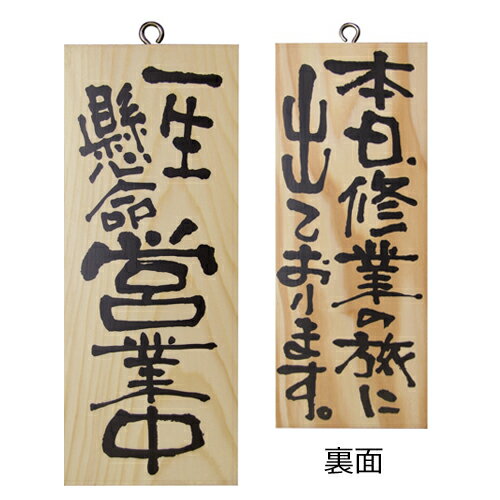 一生
懸命
営業中
本日、修業の旅に
出ております。
裏面